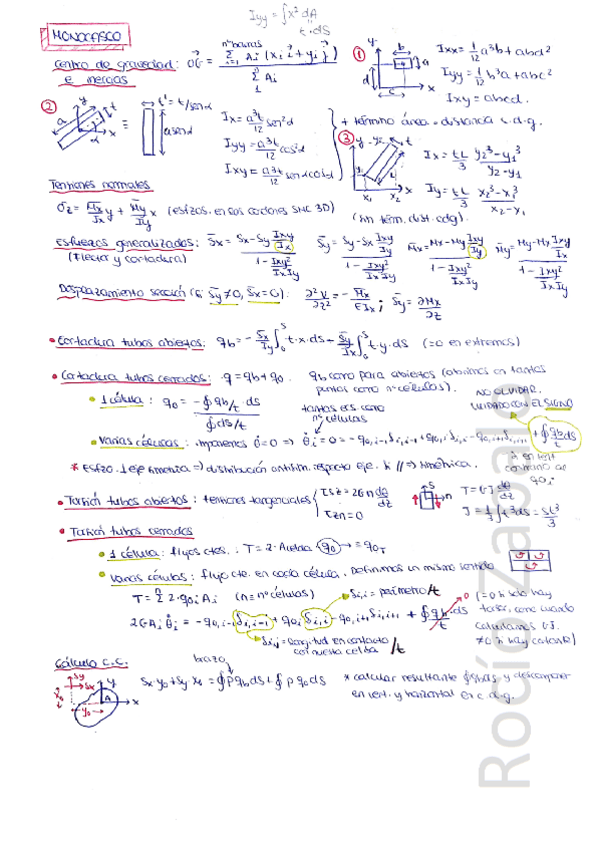 Iyy = ∫x² dA
t·ds
MONOCASCO
Centro de gravedad e inercias: OG = Σ Ai (xi i + yi j) / Σ Ai
nº barras
① Ixx = 1/12 a³b + abd²
Iyy = 1/12 b³a + abc²
Ixy = abcd.
② t' = t/senα
a senα
Ix = a³t/12 sen²α
Iyy = a³t/12 cos²α
Ixy = a³t/12 senα cosα
+ término área = distancia c.d.g.
③ Ix = tL/3 (y2³ - y1³)/(y2 - y1)
Iy = tL/3 (x2³ - x1³)/(x2 - x1)
(sin térm. dist. cdg).
Tensiones normales
σz = Mx/Ix y + My/Iy x (esfzos. en los cordones SNC 3D)
Esfuerzos generalizados: Sx = (Sx - Sy Ixy/Ix) / (1 - Ixy²/IxIy) Sy = (Sy - Sx Ixy/Iy) / (1 - Ixy²/IxIy) Mx = (Mx - My Ixy/Iy) / (1 - Ixy²/IxIy) My = (My - Mx Ixy/Ix) / (1 - Ixy²/IxIy)
(Flector y cortadura)
Desplazamiento sección (si Sy ≠ 0, Sx = 0): ∂²V/∂z² = - Mx/EIx ; Sy = ∂Mx/∂z
• Cortadura tubos abiertos: qb = - Sx/Iy ∫ t·x·ds - Sy/Ix ∫ t·y·ds (=0 en extremos)
• Cortadura tubos cerrados: q = qb + q0. qb como para abiertos (abrimos en tantos
puntos como nº células).
• 1 célula: q0 = - ∮ qb/t · ds / ∮ ds/t
tantas ecs. como
nº células
NO OLVIDAR,
CUIDADO CON EL SIGNO
• Varias células: imponemos θ̇ = 0 ⇒ θ̇i = 0 = -q0,i-1 δi,i-1 + q0,i δi,i - q0,i+1 δi,i+1 + ∮ qb ds/t
si en sent
contrario al
q0,i
* Esfzo. 1 eje simetría ⇒ distribución antisim. respecto eje. Si // ⇒ simétrica.
• Torsión tubos abiertos: tensiones tangenciales { τsz = 2Gn dθ/dz
τzn = 0
T = GJ dθ/dz
J = 1/3 ∫ t³ ds = St³/3
• Torsión tubos cerrados
• 1 célula: flujos ctes.: T = 2·Acelula q0 → = q0T
• Varias células: flujo cte. en cada célula. Definimos un mismo sentido
T = Σ 2·q0i Ai (n = nº células)
δi,i = perímetro/t
2GAi θ̇i = -q0,i-1 δi,i-1 + q0i δi,i - q0,i+1 δi,i+1 + ∮ qb/t ds
0 (=0 si solo hay
torsor, como cuando
calculamos GJ.
≠0 si hay cortante)
δi,j = longitud en contacto
con nuestra celda /t
Cálculo C.C.:
brazo
Sx y0 + Sy x0 = ∮ p qb ds + ∮ p q0 ds
* calcular resultante y descomponer
en vert. y horizontal en c.d.g.
Rocío Zaballa